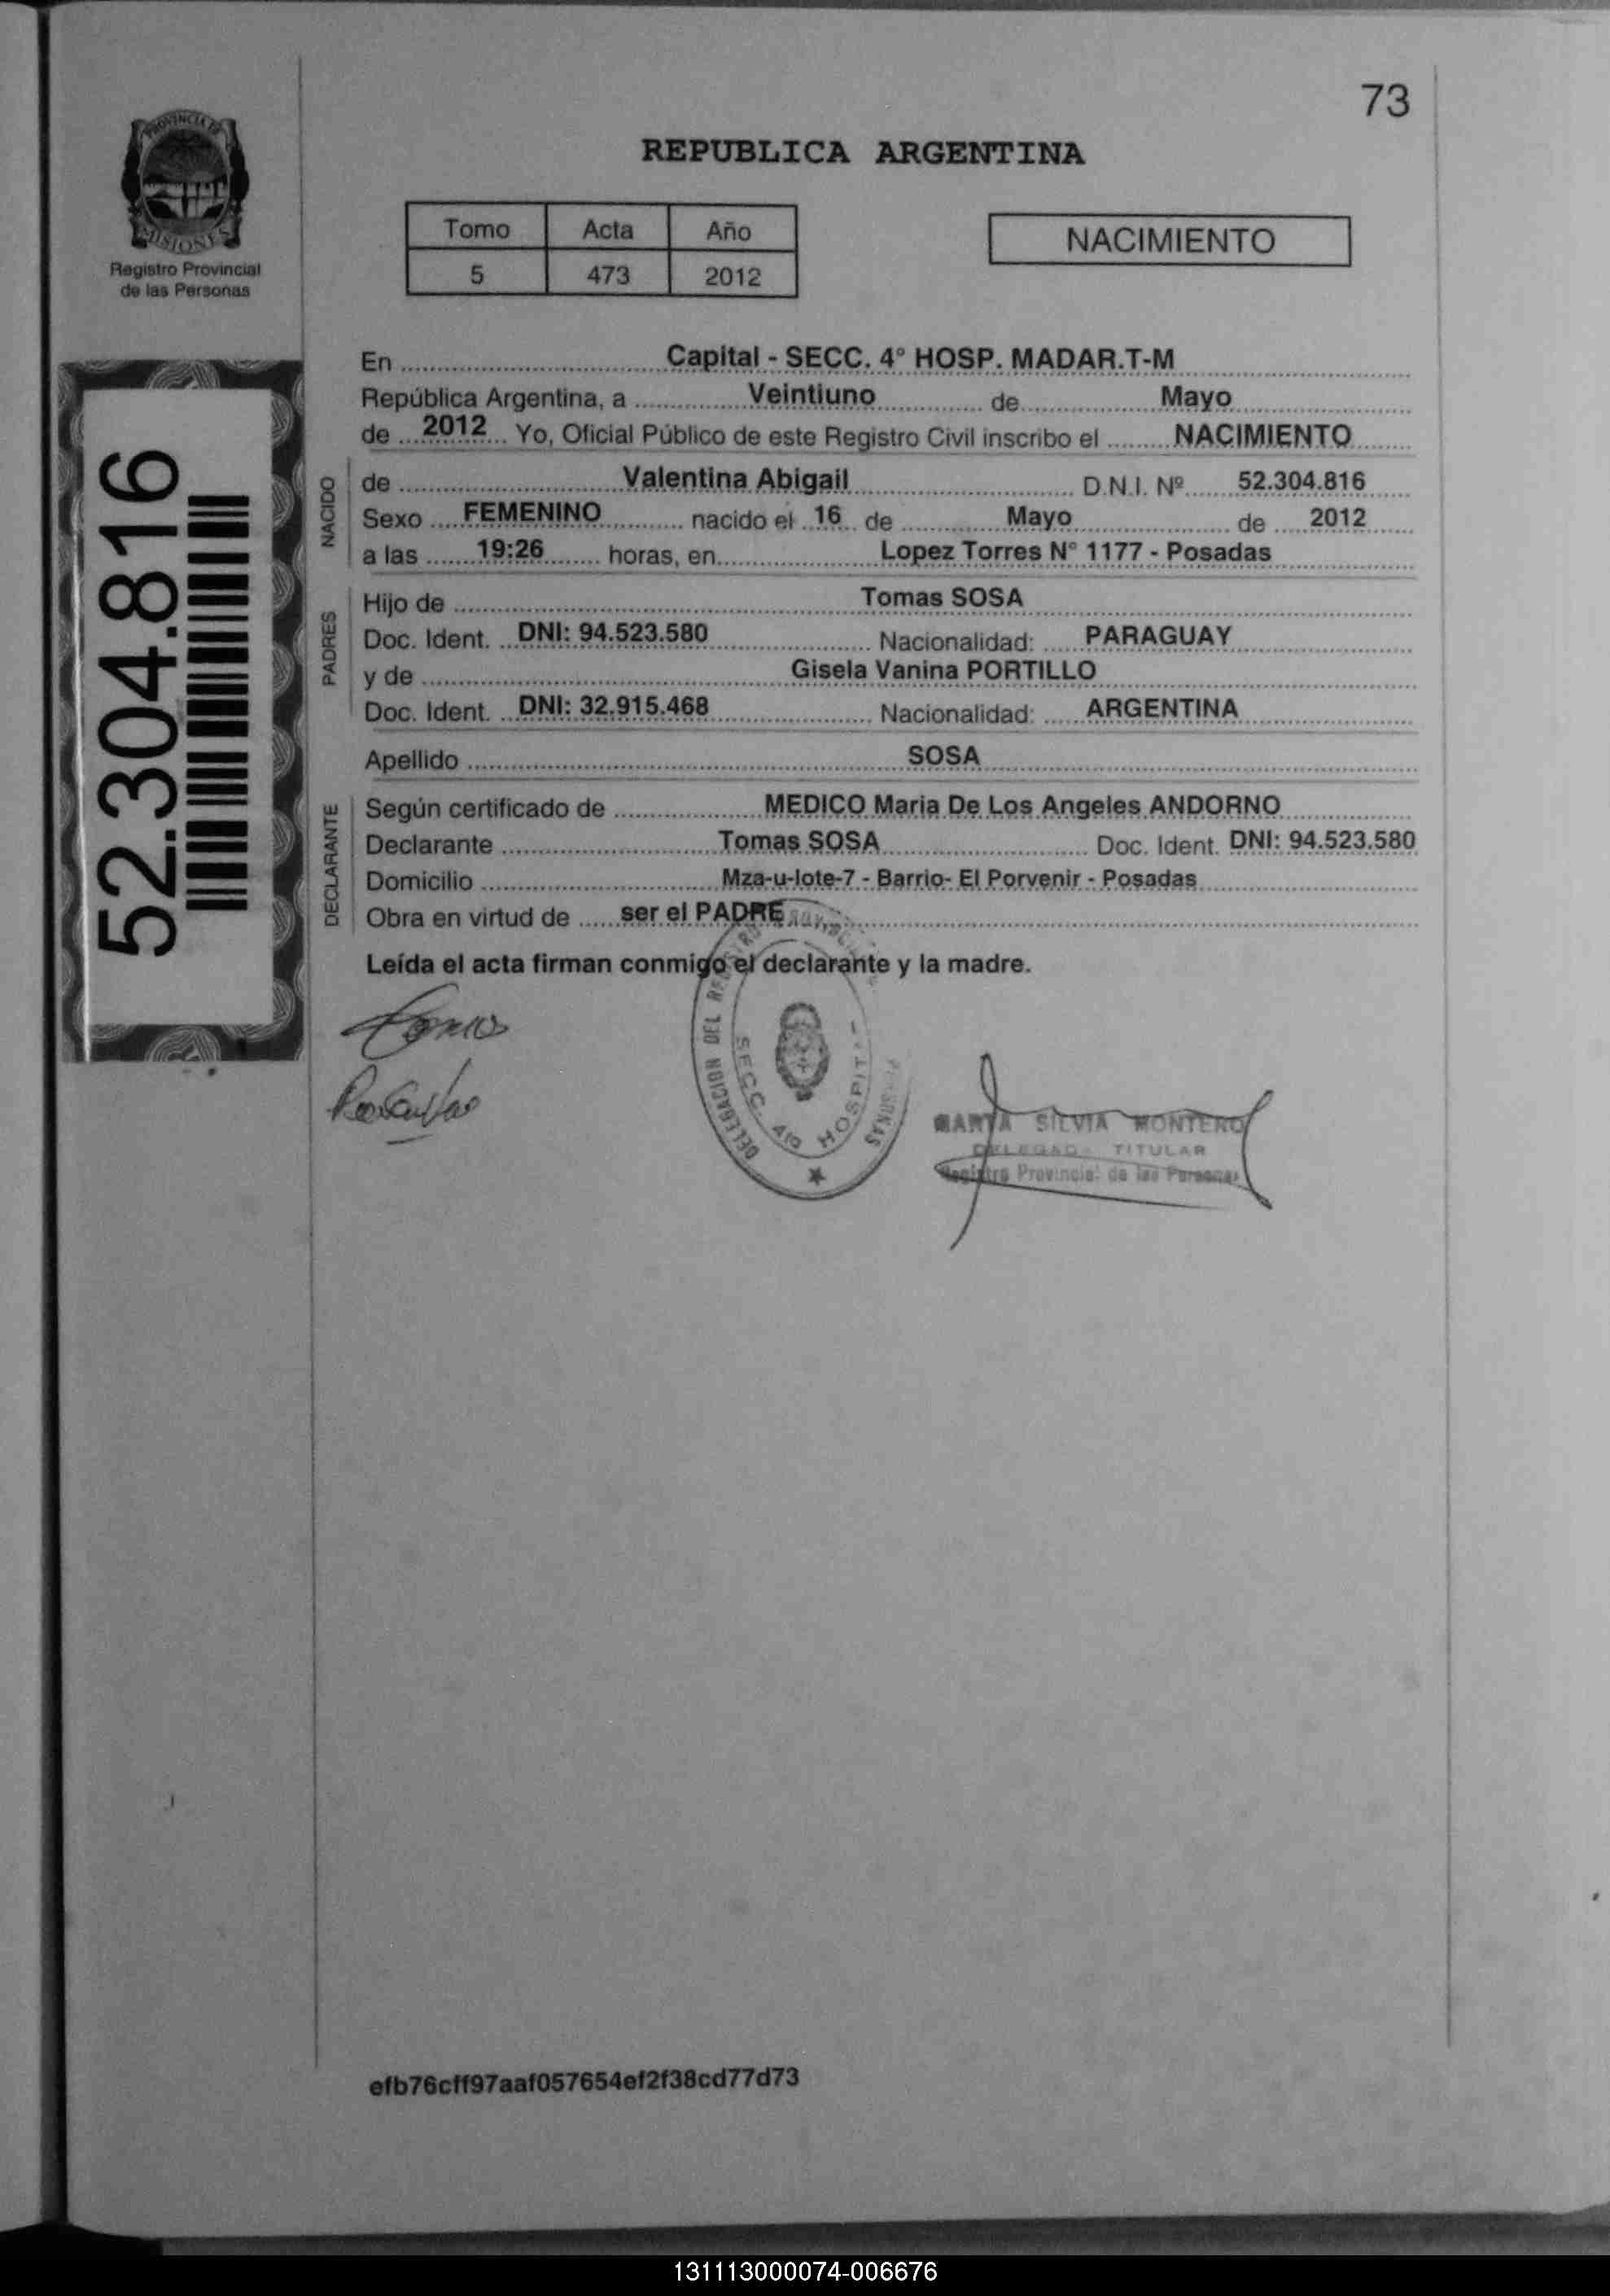 73
REPUBLICA ARGENTINA
PROVINCIA DE
MISIONES
Registro Provincial
de las Personas
Tomo Acta Año
5 473 2012
NACIMIENTO
52.304.816
En Capital - SECC. 4° HOSP. MADAR.T-M
República Argentina, a Veintiuno de Mayo
de 2012 Yo, Oficial Público de este Registro Civil inscribo el NACIMIENTO
NACIDO
de Valentina Abigail D.N.I. Nº 52.304.816
Sexo FEMENINO nacido el 16 de Mayo de 2012
a las 19:26 horas, en Lopez Torres N° 1177 - Posadas
PADRES
Hijo de Tomas SOSA
Doc. Ident. DNI: 94.523.580 Nacionalidad: PARAGUAY
y de Gisela Vanina PORTILLO
Doc. Ident. DNI: 32.915.468 Nacionalidad: ARGENTINA
Apellido SOSA
DECLARANTE
Según certificado de MEDICO Maria De Los Angeles ANDORNO
Declarante Tomas SOSA Doc. Ident. DNI: 94.523.580
Domicilio Mza-u-lote-7 - Barrio- El Porvenir - Posadas
Obra en virtud de ser el PADRE
Leída el acta firman conmigo el declarante y la madre.
DELEGACION DEL
SECC. 4ta HOSPITAL
MARTA SILVIA MONTERO
DELEGADO TITULAR
Registro Provincial de las Personas
efb76cff97aaf057654ef2f38cd77d73
131113000074-006676